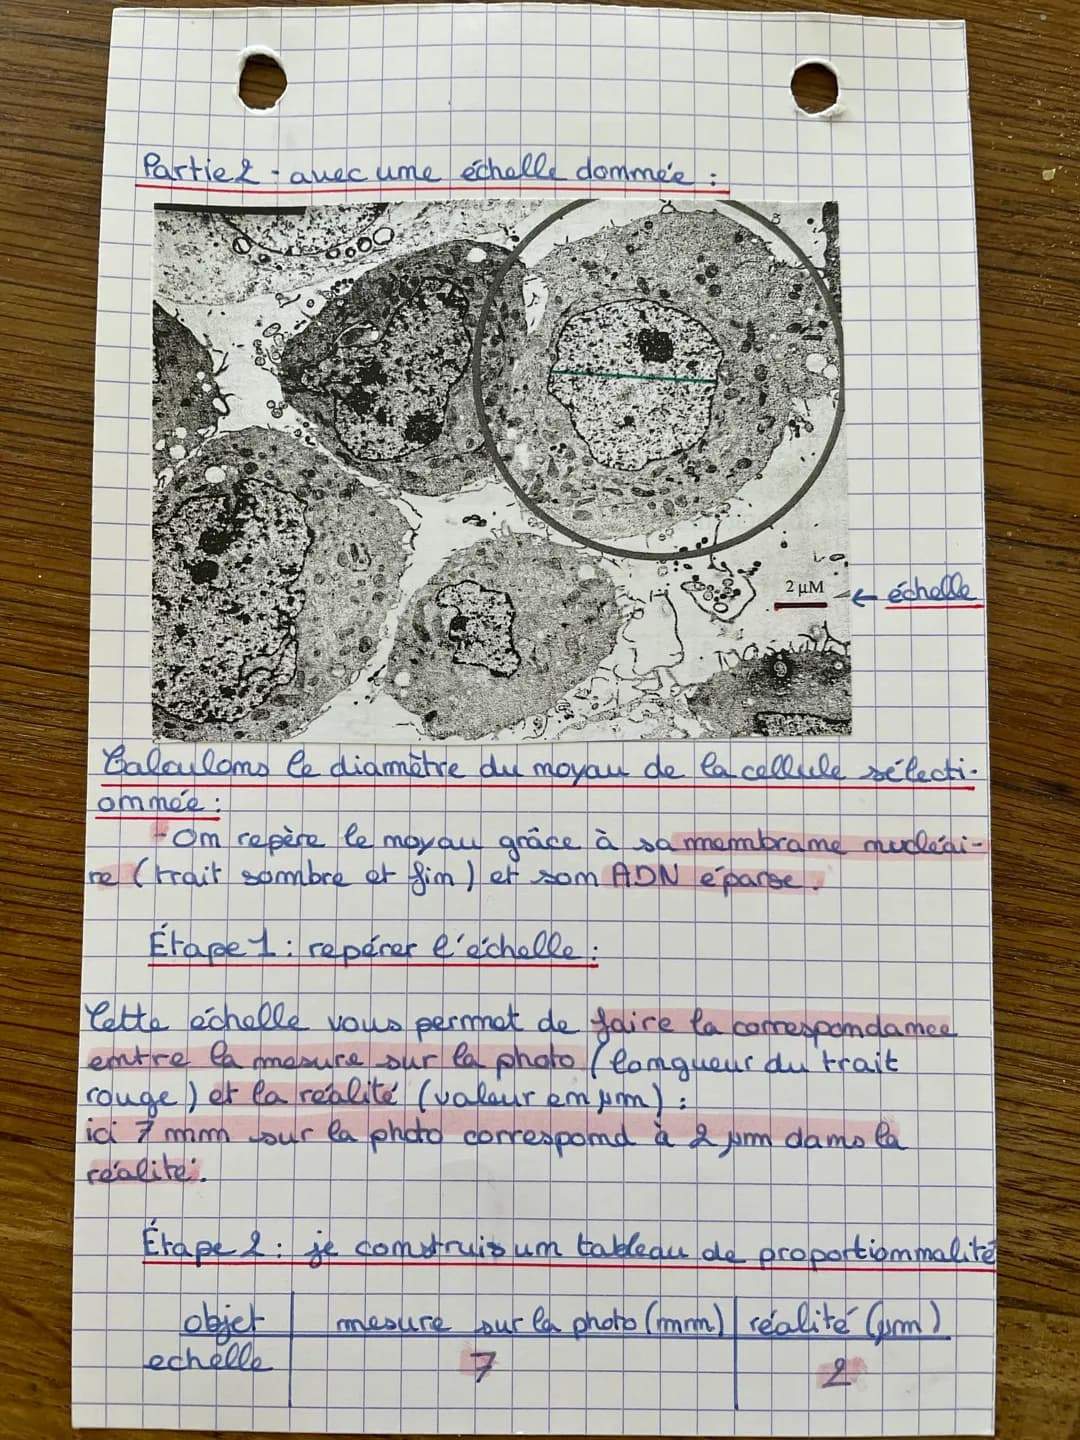 Partie 2 - avec une échelle donnée :
2 µM
← échelle
Calculons le diamètre du noyau de la cellule sélecti-
onnée :
- On repère le noyau grâce à sa membrane nucléai-
re (trait sombre et fin) et son ADN éparse.
Étape 1 : repérer l'échelle :
Cette échelle vous permet de faire la correspondance
entre la mesure sur la photo (longueur du trait
rouge) et la réalité (valeur en µm) :
ici 7 mm sur la photo correspond à 2 µm dans la
réalité.
Étape 2 : je construis un tableau de proportionnalité
objet mesure sur la photo (mm) réalité (µm)
echelle 7 2